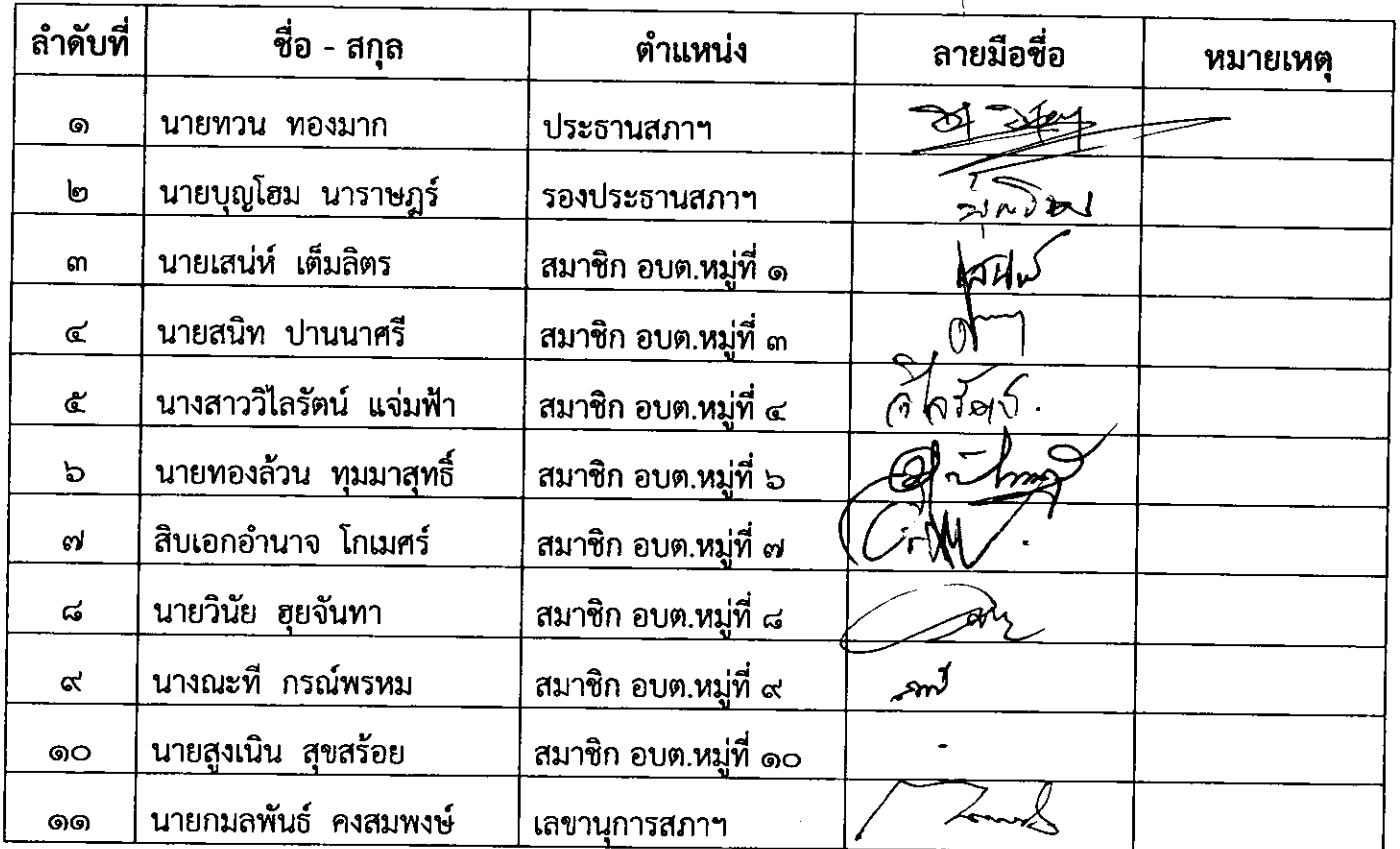 ลำดับที่ ชื่อ - สกุล ตำแหน่ง ลายมือชื่อ หมายเหตุ
๑ นายทวน ทองมาก ประธานสภาฯ
๒ นายบุญโฮม นาราษฎร์ รองประธานสภาฯ
๓ นายเสน่ห์ เต็มลิตร สมาชิก อบต.หมู่ที่ ๑ เสน่ห์
๔ นายสนิท ปานนาศรี สมาชิก อบต.หมู่ที่ ๓
๕ นางสาววิไลรัตน์ แจ่มฟ้า สมาชิก อบต.หมู่ที่ ๔ วิไลรัตน์
๖ นายทองล้วน ทุมมาสุทธิ์ สมาชิก อบต.หมู่ที่ ๖
๗ สิบเอกอำนาจ โกเมศร์ สมาชิก อบต.หมู่ที่ ๗
๘ นายวินัย ฮุยจันทา สมาชิก อบต.หมู่ที่ ๘
๙ นางณะที กรณ์พรหม สมาชิก อบต.หมู่ที่ ๙
๑๐ นายสูงเนิน สุขสร้อย สมาชิก อบต.หมู่ที่ ๑๐ -
๑๑ นายกมลพันธ์ คงสมพงษ์ เลขานุการสภาฯ